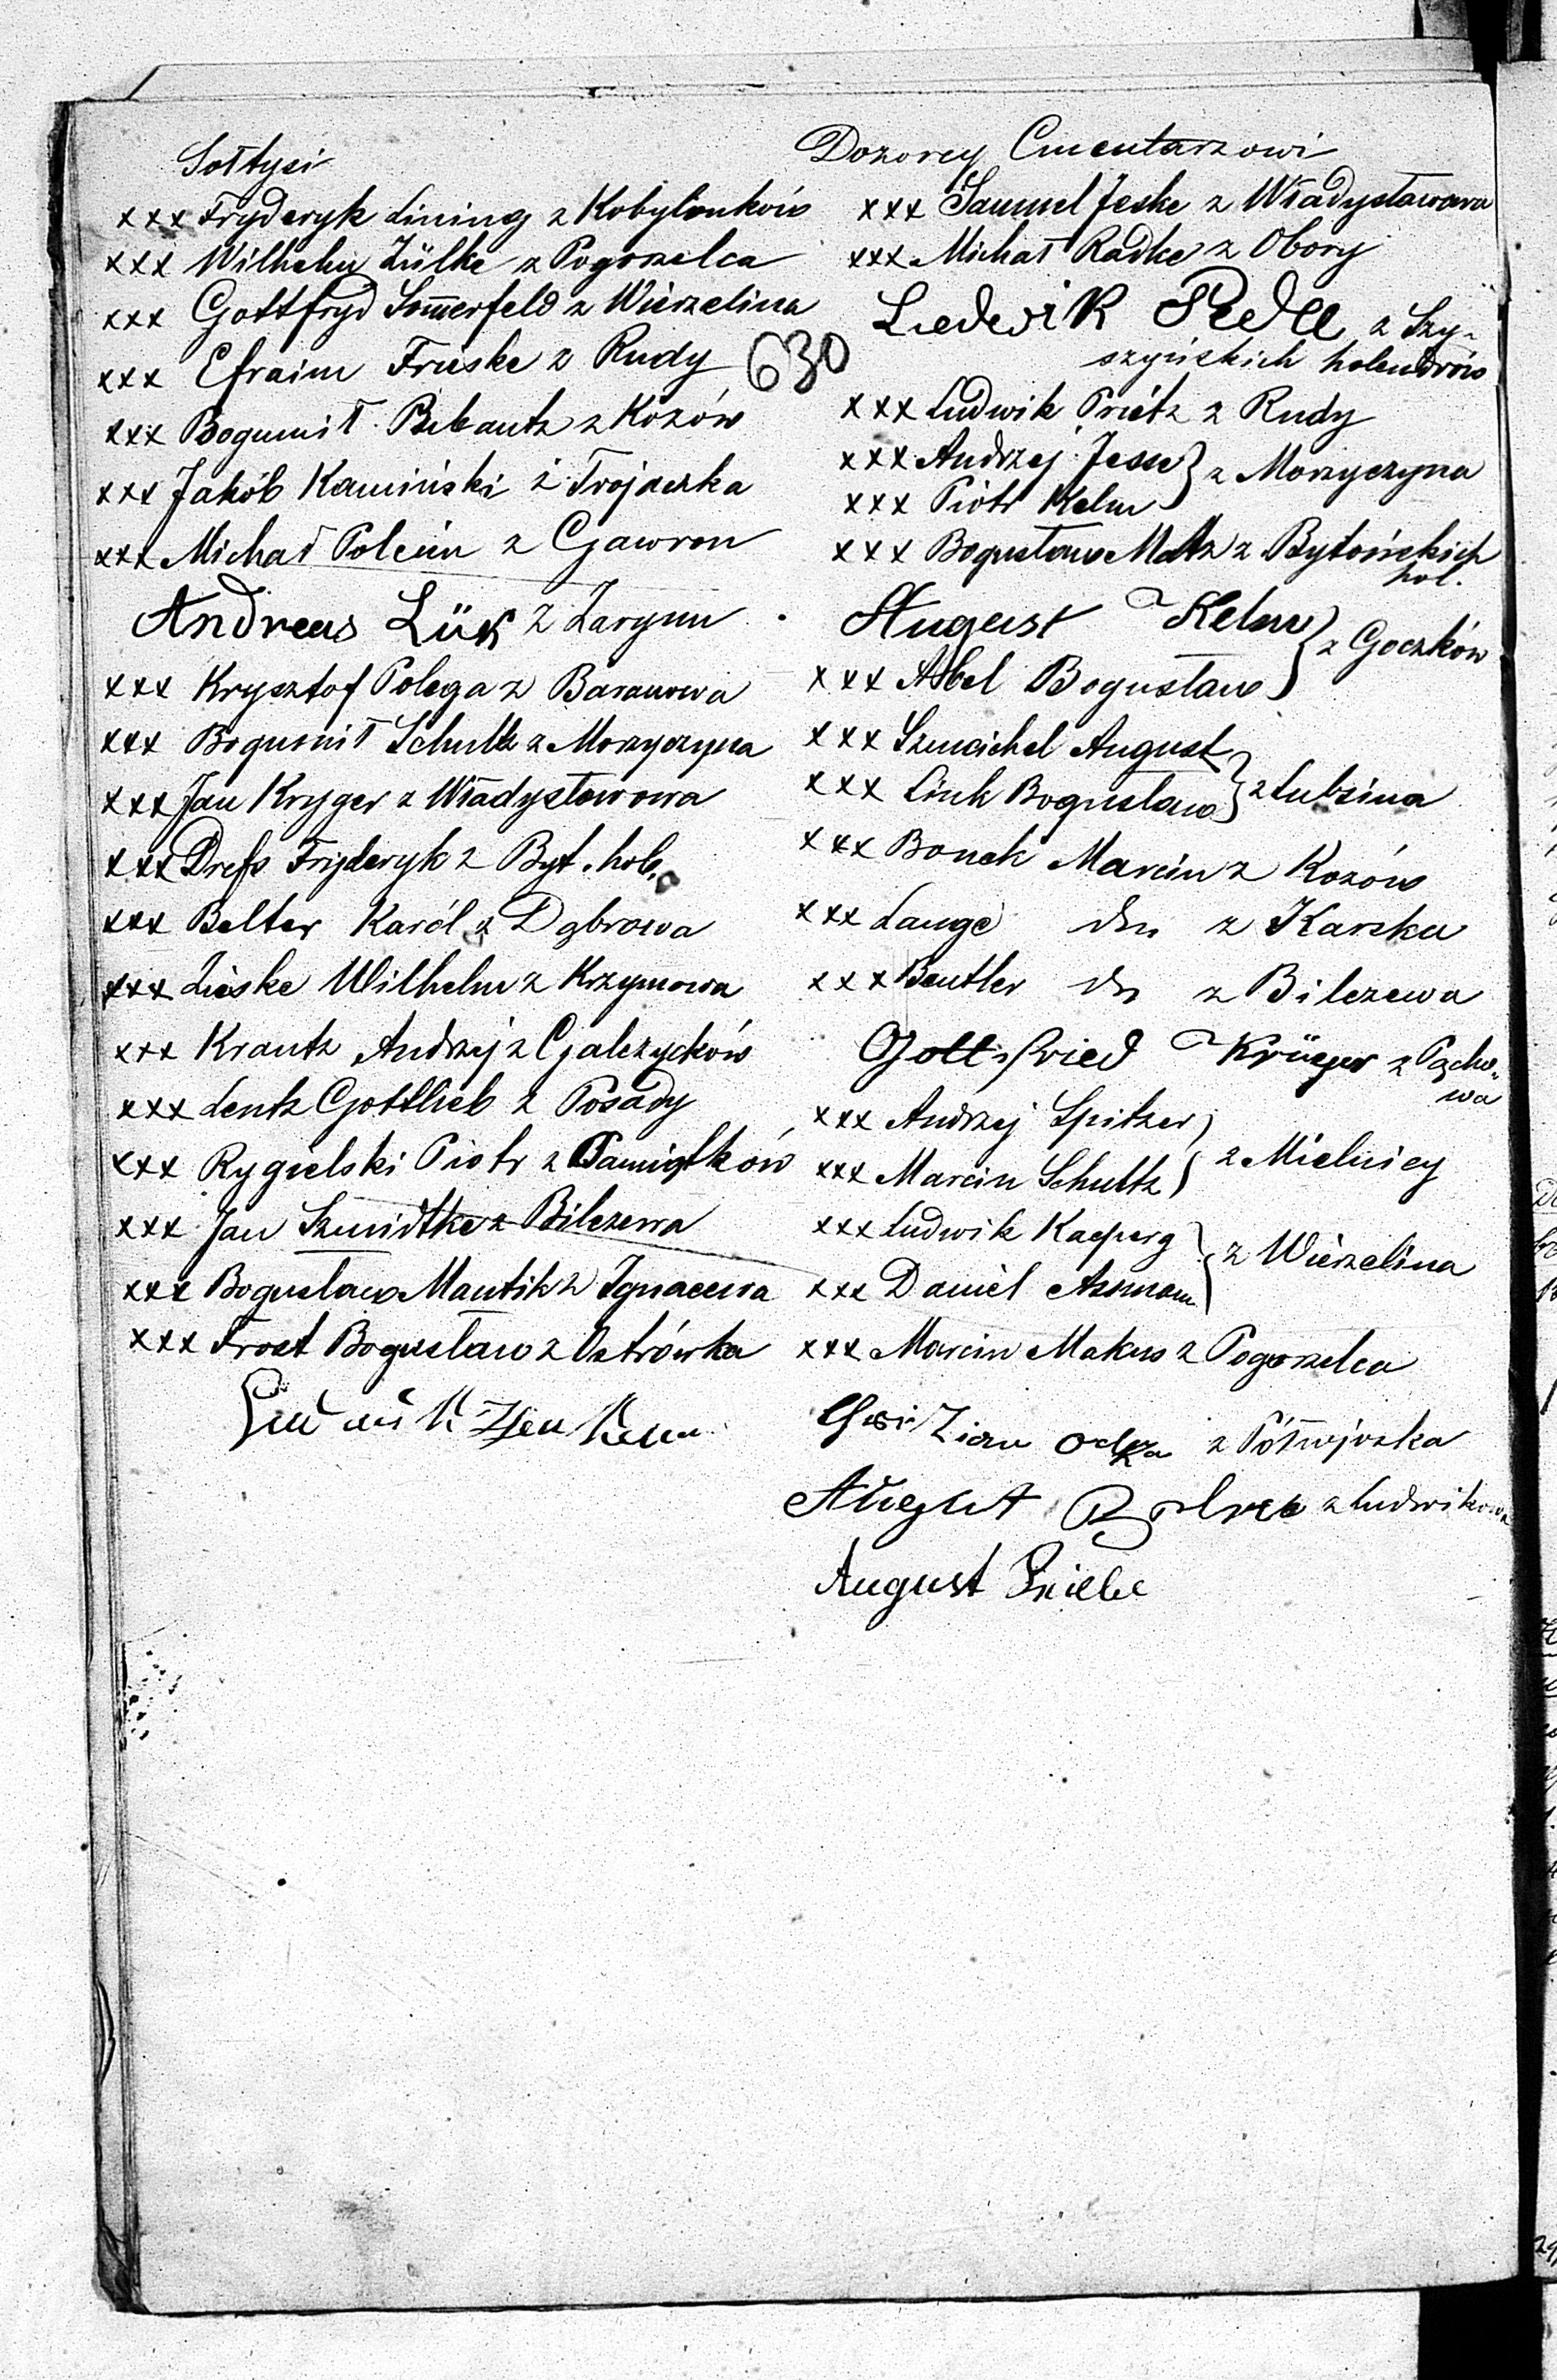 Sołtysi
xxx Fryderyk Lining z Kobylanków
xxx Wilhelm Zülke z Pogorzelca
xxx Gottfryd Som̅erfeld z Wierzelina
xxx Efraim Freske z Rudy
630
xxx Bogumił z Kozów
xxx Jakób Kamiński z Trojaczka
xxx Michał Polein z Gawron
Andreas Lük z Zarynu
xxx Krysztof Polega z Baranowa
xxx Bogumił Schultz z Morzyczyna
xxx Jan Kryger z Władysławowa
xxx Drefs Fryderyk z Byt. hol.
xxx Belter Karól z Dąbrowa
xxx Lieske Wilhelm z Krzymowa
xxx Krantz Andrzej z Gałczycków
xxx Lentz Gottlieb z Posady
xxx Rygielski Piotr z Pamiątków
xxx Jan Szmidtke z Bilczewa
xxx Bogusław Mantik z Ignacewa
xxx Frost Bogusław z Ostrówka
Dozorcy Cmentarzowi
xxx Samuel Jeske z Władysławowa
xxx Michał Radke z Obory
Ludwik z Szy-
szyńskich holendrów
xxx Ludwik Prietz z Rudy
xxx Andrzej Jess } z Morzyczyna
xxx Piotr Kelm
xxx Bogusław Matz z Bytońskich
hol.
August Kelm } z Goczków
xxx Abel Bogusław
xxx Szmeichel August
xxx Link Bogusław } z Lubsina
xxx Bonek Marcin z Kozów
xxx Lange dto z Karska
xxx Beutler dto z Bilczewa
Gottfried Krüger z Pącho-
wa
xxx Andrzej Spitzer
xxx Marcin Schultz } z Mielnicy
xxx Ludwik Kacperg } z Wierzelina
xxx Daniel Asman
xxx Marcin Makus z Pogorzelca
z Półwiejozka
August z Ludwikowa
August Kriebe